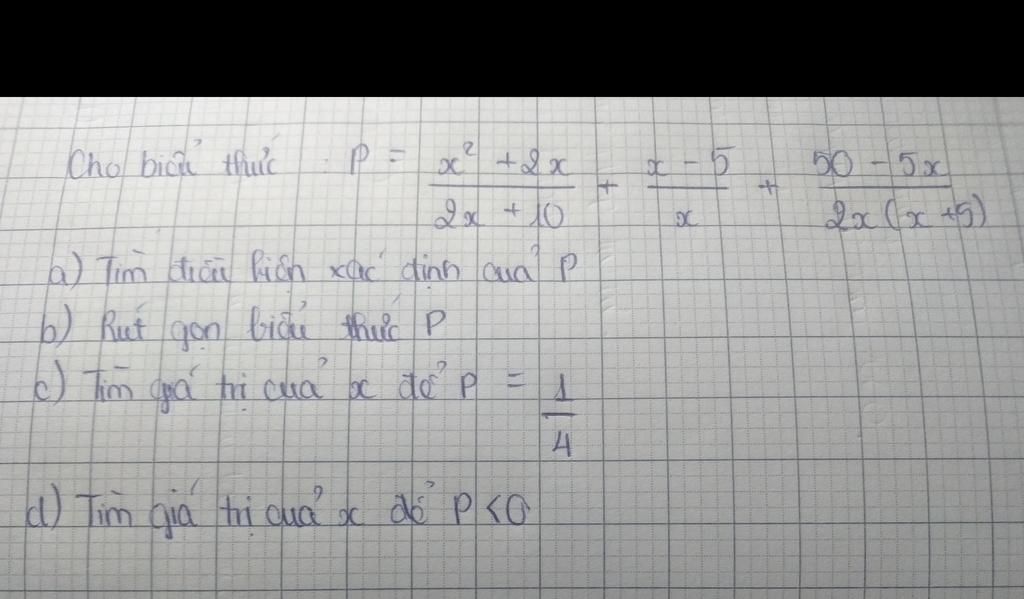 Cho biểu thức : P = \frac{x² + 2x}{2x + 10} + \frac{x - 5}{x} + \frac{50 - 5x}{2x(x + 5)}
a) Tìm điều kiện xác định của P
b) Rút gọn biểu thức P
c) Tìm giá trị của x để P = \frac{1}{4}
d) Tìm giá trị của x để P < 0